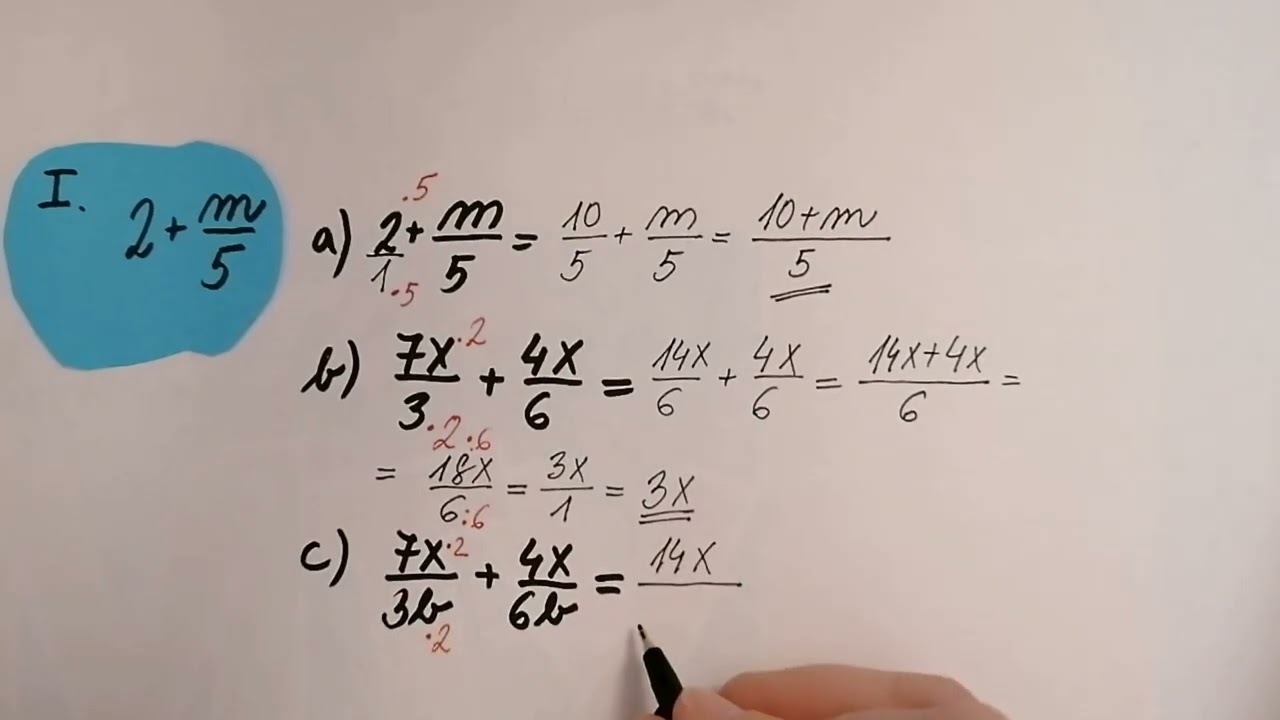 I. 2 + m/5
a) 2/1 ·5 ·5 + m/5 = 10/5 + m/5 = 10+m/5
b) 7x/3 ·2 ·2 + 4x/6 = 14x/6 + 4x/6 = 14x+4x/6 =
= 18x/6 :6 :6 = 3x/1 = 3x
c) 7x/3b ·2 ·2 + 4x/6b = 14x